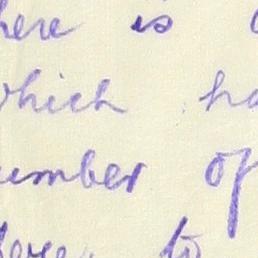 here is
which ha
umber of
to